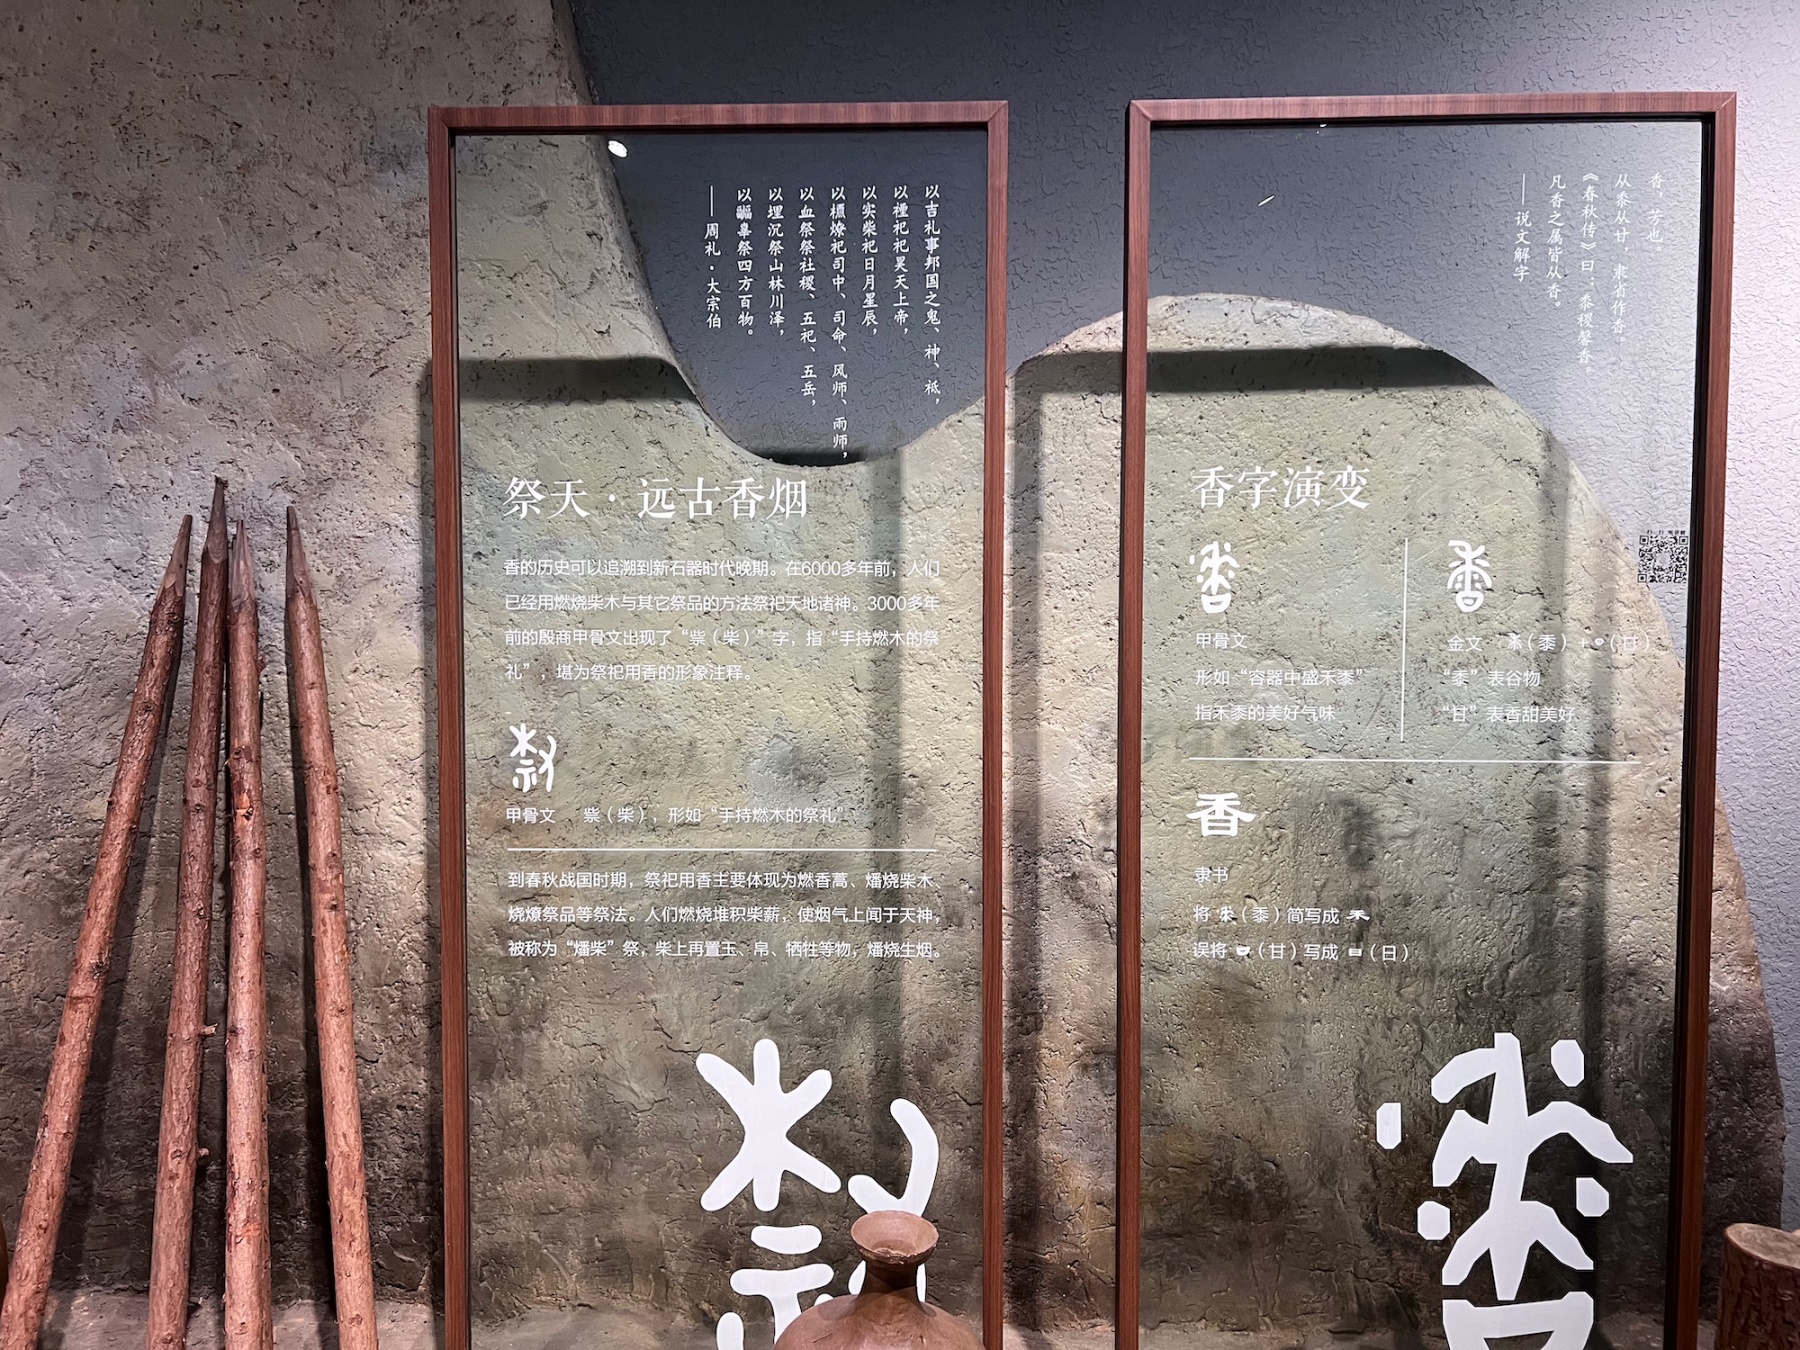 以吉礼事邦国之鬼、神、祗，
以禋祀祀昊天上帝，
以实柴祀日月星辰，
以槱燎祀司中、司命、风师、雨师，
以血祭祭社稷、五祀、五岳，
以埋沉祭山林川泽，
以疈辜祭四方百物。
——周礼·大宗伯
祭天·远古香烟
香的历史可以追溯到新石器时代晚期。在6000多年前，人们
已经用燃烧柴木与其它祭品的方法祭祀天地诸神。3000多年
前的殷商甲骨文出现了“祡（柴）”字，指“手持燃木的祭
礼”，堪为祭祀用香的形象注释。
甲骨文 祡（柴），形如“手持燃木的祭礼”
到春秋战国时期，祭祀用香主要体现为燃香蒿、燔烧柴木、
烧燎祭品等祭法。人们燃烧堆积柴薪，使烟气上闻于天神，
被称为“燔柴”祭，柴上再置玉、帛、牺牲等物，燔烧生烟。
香，芳也。
从黍从甘，隶省作香。
《春秋传》曰：黍稷馨香。
凡香之属皆从香。
——说文解字
香字演变
甲骨文
形如“容器中盛禾黍”
指禾黍的美好气味
金文 （黍）+（甘）
“黍”表谷物
“甘”表香甜美好
香
隶书
将（黍）简写成
误将（甘）写成（日）